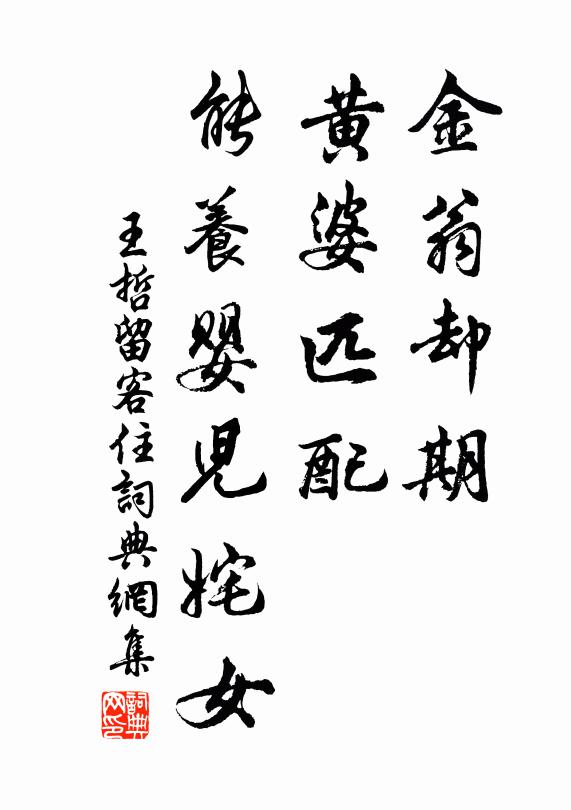 金翁却期
黄婆匹配
能養嬰兒姹女
王哲留客住詞典網集
詞典網印